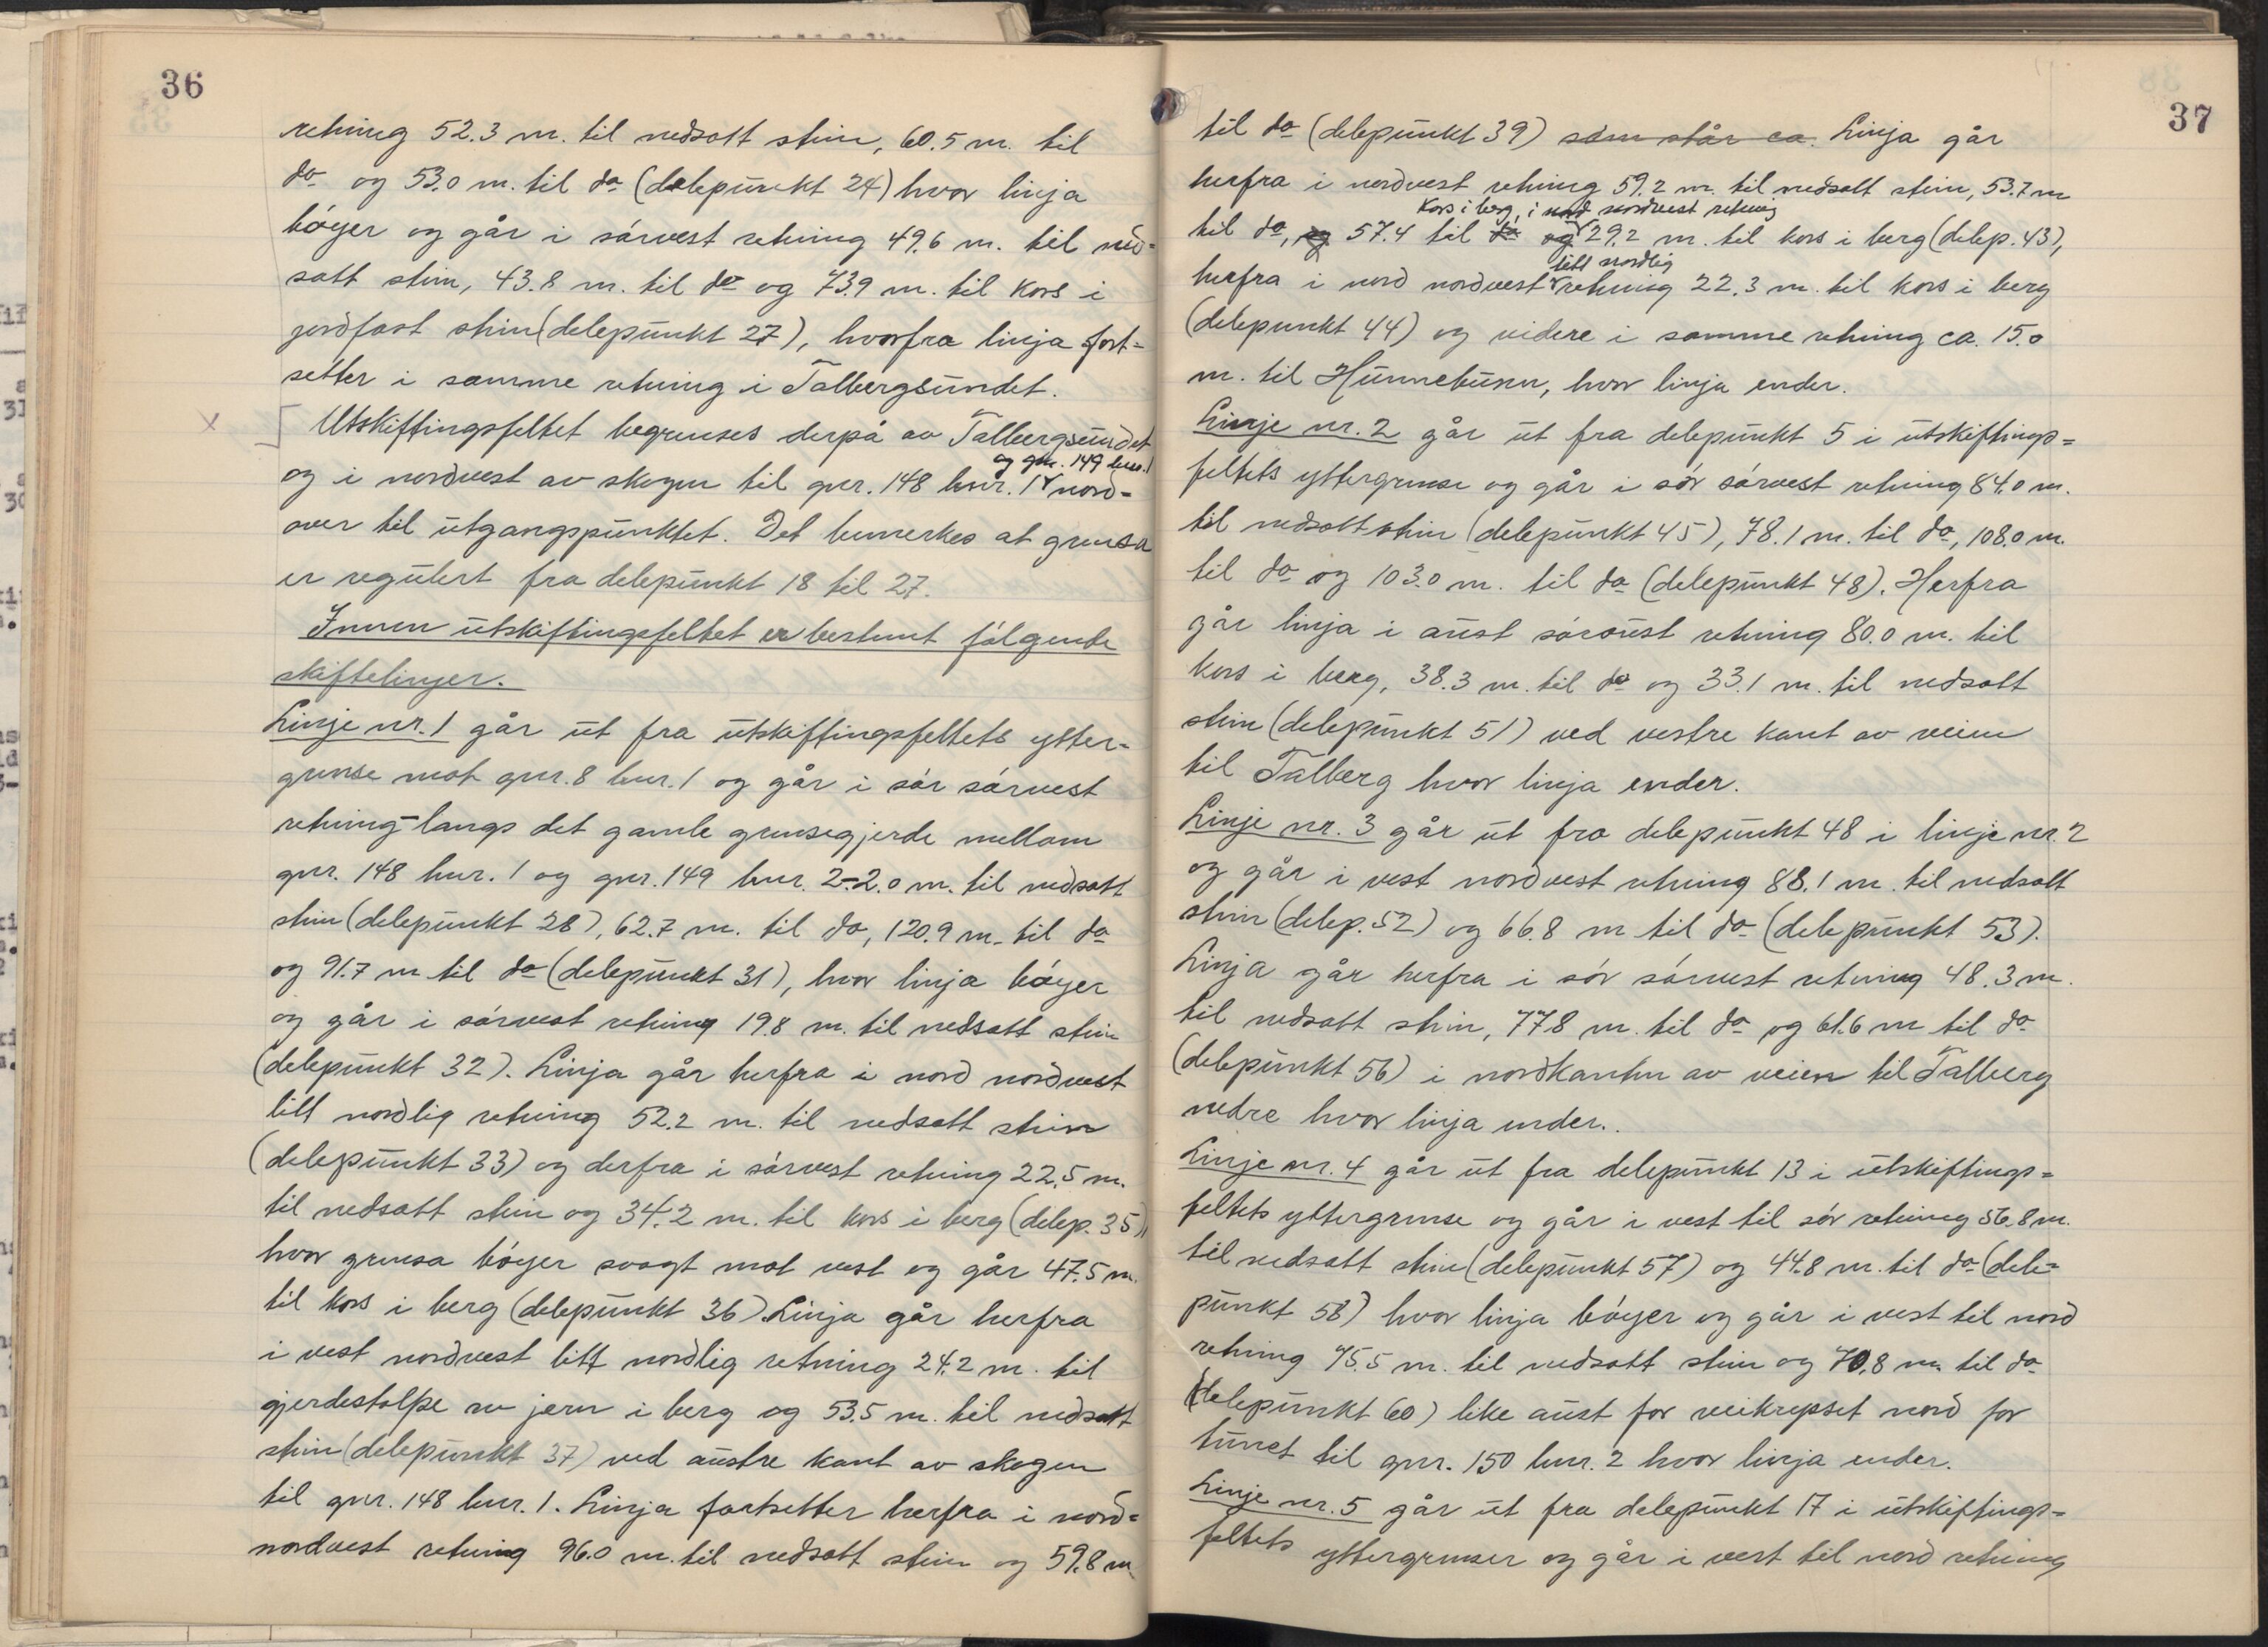 36
retning 52.3 m. til nedsatt stein, 60.5 m. til
do og 53.0 m. til do (delepunkt 24) hvor linja
bøyer og går i sørvest retning 49.6 m. til ned=
satt stein, 43.8 m. til do og 73.9 m. til kors i
jordfast stein (delepunkt 27), hvorfra linja fort=
setter i samme retning i Talbergsundet.
x [ Utskiftingsfeltet begrenses derpå av Talbergsundet
og gnr. 149 bnr. 1
og i nordvest av skogen til gnr. 148 bnr. 1 nord=
over til utgangspunktet. Det bemerkes at grensa
er regulert fra delepunkt 18 til 27.
Innen utskiftingsfeltet er bestemt følgende
skiftelinjer.
Linje nr. 1 går ut fra utskiftingsfeltets ytter=
grense mot gnr. 8 bnr. 1 og går i sør sørvest
retning - langs det gamle grensegjerde mellom
gnr. 148 bnr. 1 og gnr. 149 bnr. 2 - 2.0 m. til nedsatt
stein (delepunkt 28), 62.7 m. til do, 120.9 m. til do
og 91.7 m til do (delepunkt 31), hvor linja bøyer
og går i sørvest retning 19.8 m. til nedsatt stein
(delepunkt 32). Linja går herfra i nord nordvest
litt nordlig retning 52.2 m. til nedsatt stein
(delepunkt 33) og derfra i sørvest retning 22.5 m.
til nedsatt stein og 34.2 m. til kors i berg (delep. 35),
hvor grensa bøyer svagt mot vest og går 47.5 m.
til kors i berg (delepunkt 36). Linja går herfra
i vest nordvest litt nordlig retning 24.2 m. til
gjerdestolpe av jern i berg og 53.5 m. til nedsatt
stein (delepunkt 37) ved austre kant av skogen
til gnr. 148 bnr. 1. Linja fortsetter herfra i nord=
nordvest retning 96.0 m. til nedsatt stein og 59.8 m
37
til do (delepunkt 39) som står ca. Linja går
herfra i nordvest retning 59.2 m. til nedsatt stein, 53.7 m
kors i berg, i nord nordvest retning
til do, og 57.4 til do og 29.2 m. til kors i berg (delep. 43),
litt nordlig
herfra i nord nordvest retning 22.3 m. til kors i berg
(delepunkt 44) og videre i samme retning ca. 15.0
m. til Hunnebunn, hvor linja ender.
Linje nr. 2 går ut fra delepunkt 5 i utskiftings=
feltets yttergrense og går i sør sørvest retning 84.0 m.
til nedsatt stein (delepunkt 45), 78.1 m. til do, 108.0 m.
til do og 103.0 m. til do (delepunkt 48). Herfra
går linja i aust søraust retning 80.0 m. til
kors i berg, 38.3 m. til do og 33.1 m. til nedsatt
stein (delepunkt 51) ved vestre kant av veien
til Talberg hvor linja ender.
Linje nr. 3 går ut fra delepunkt 48 i linje nr. 2
og går i vest nordvest retning 88.1 m. til nedsatt
stein (delep. 52) og 66.8 m til do (delepunkt 53).
Linja går herfra i sør sørvest retning 48.3 m.
til nedsatt stein, 77.8 m. til do og 61.6 m til do
(delepunkt 56) i nordkanten av veien til Talberg
nedre hvor linja ender.
Linje nr. 4 går ut fra delepunkt 13 i utskiftings=
feltets yttergrense og går i vest til sør retning 56.8 m.
til nedsatt stein (delepunkt 57) og 44.8 m. til do (dele=
punkt 58) hvor linja bøyer og går i vest til nord
retning 75.5 m. til nedsatt stein og 70.8 m. til do
(delepunkt 60) like aust for veikrysset nord for
tunet til gnr. 150 bnr. 2 hvor linja ender.
Linje nr. 5 går ut fra delepunkt 17 i utskiftings=
feltets yttergrenser og går i vest til nord retning